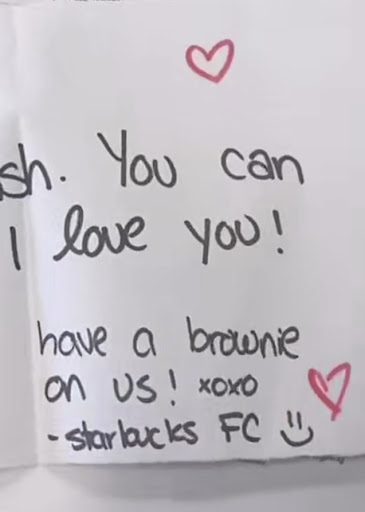 sh. You can
I love you!
have a brownie
on us! xoxo
- starbucks FC